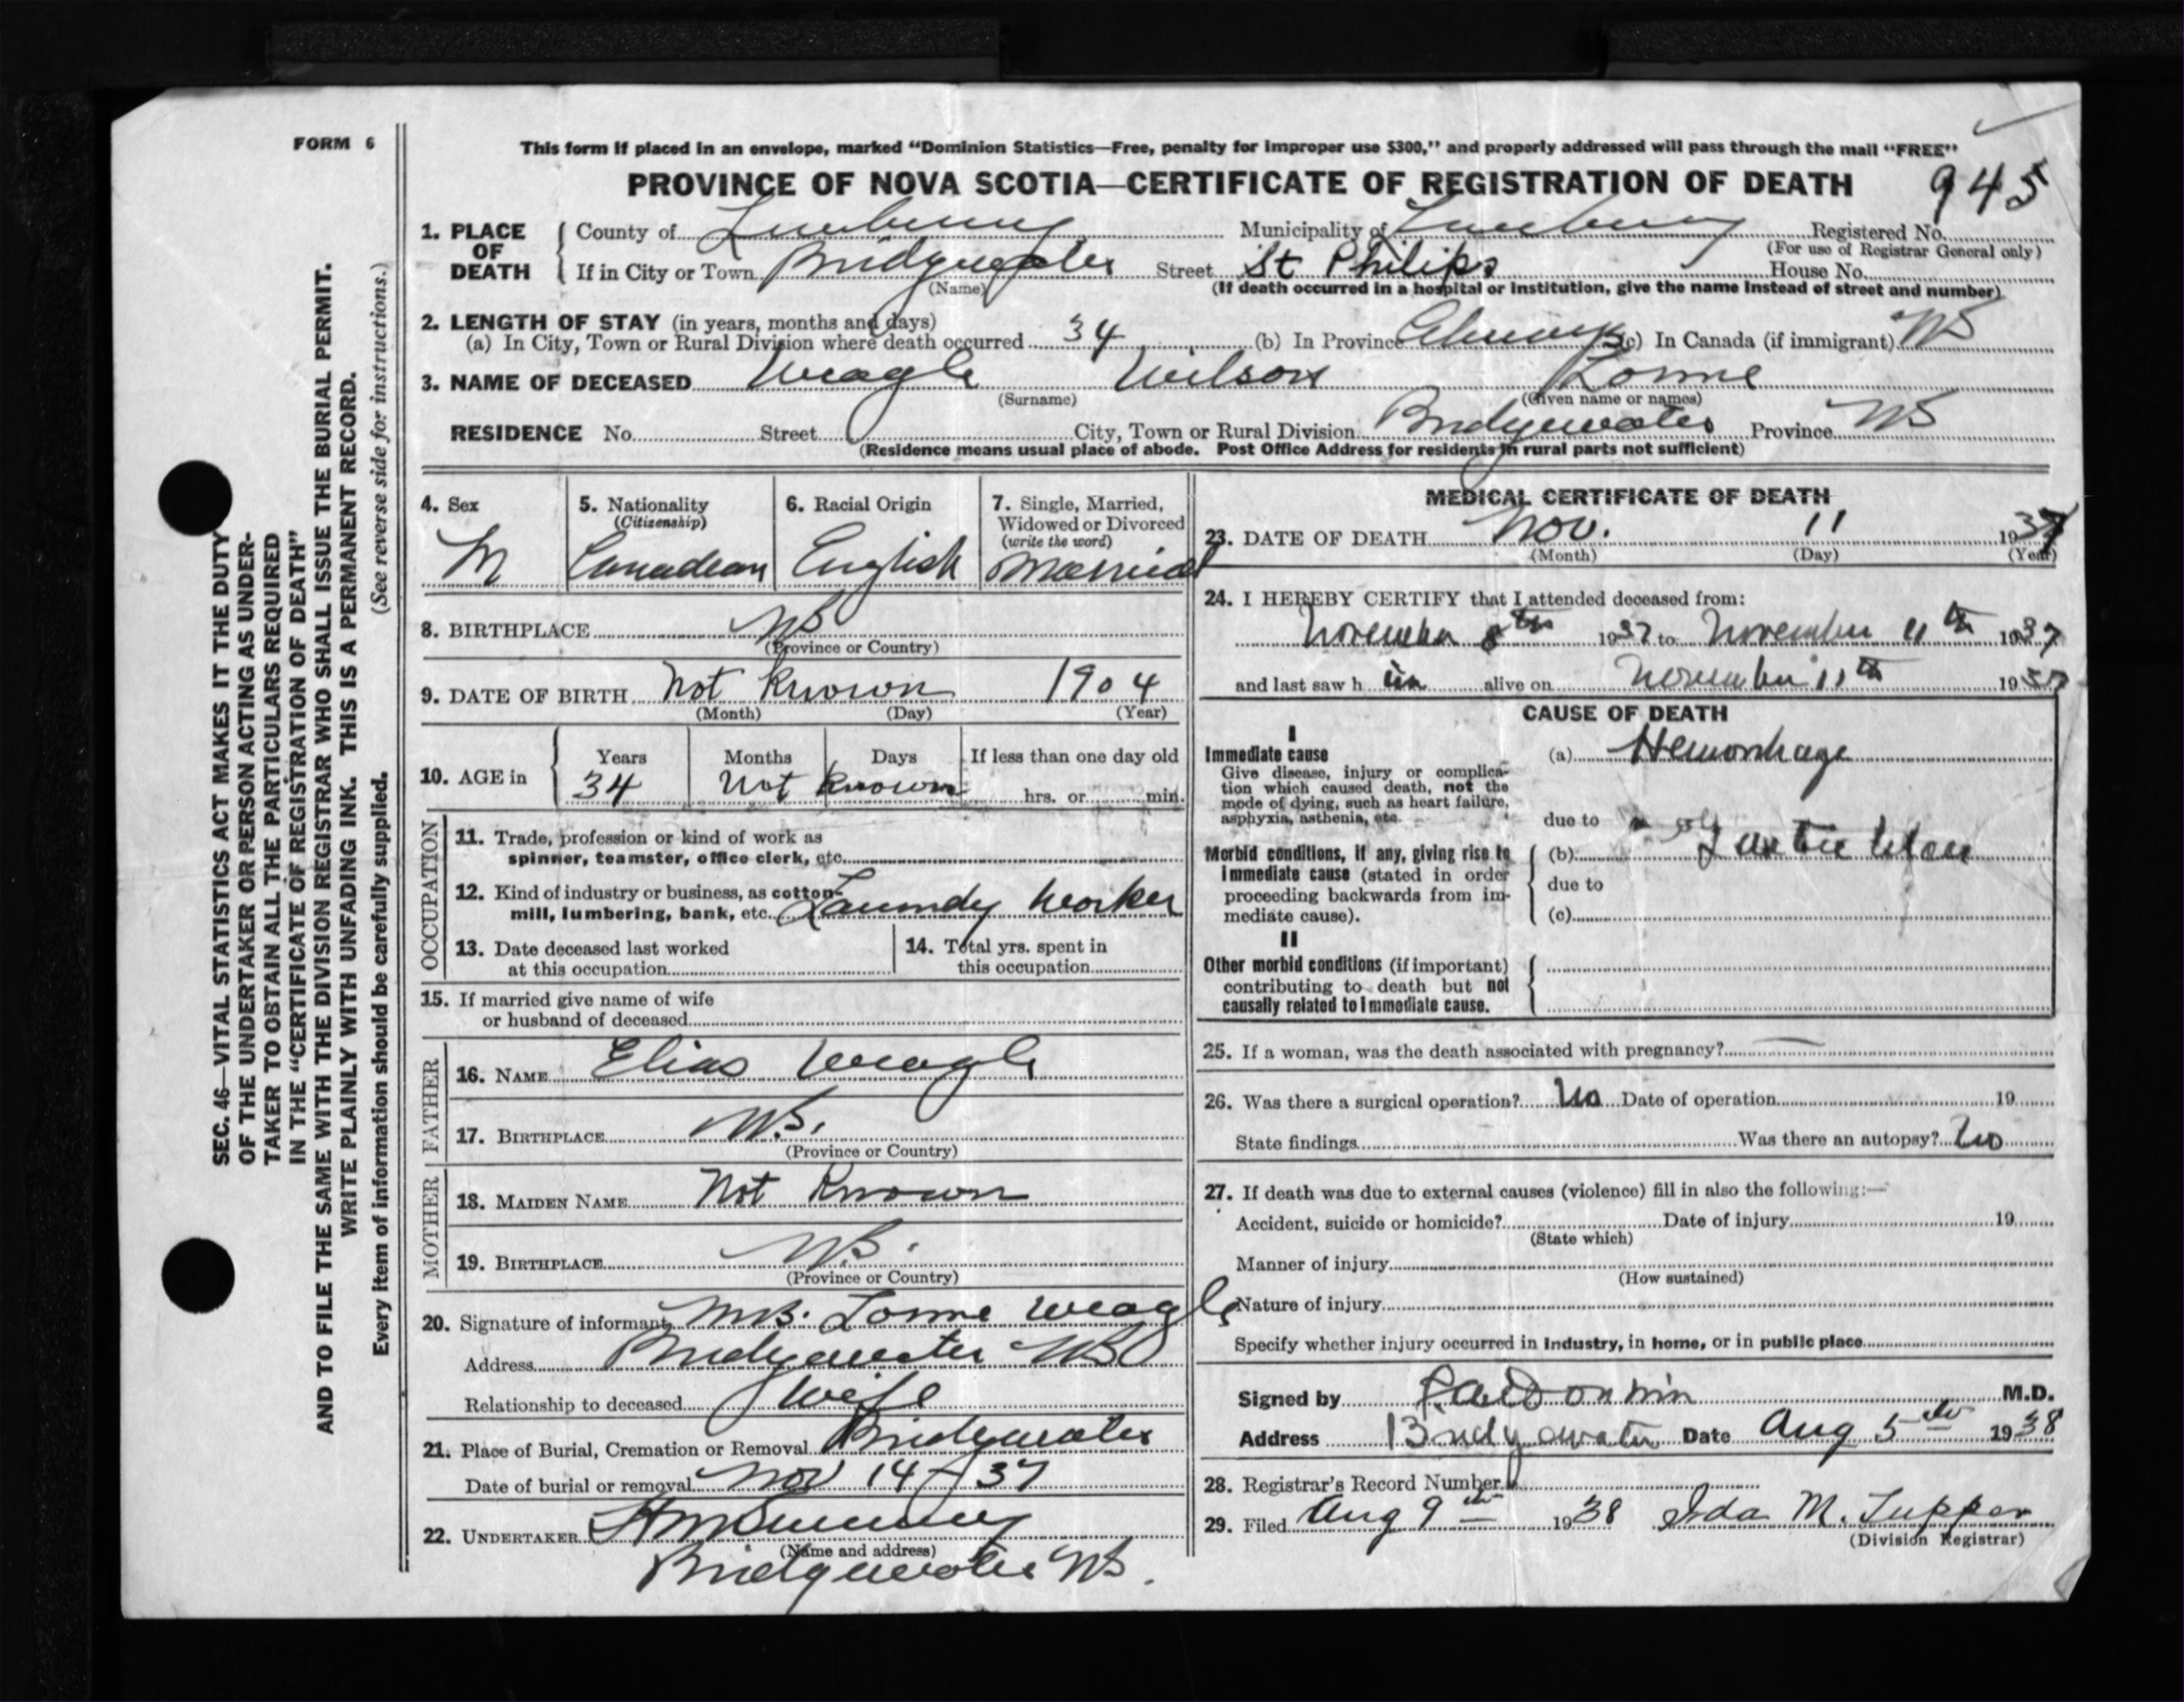 FORM 6
This form if placed in an envelope, marked "Dominion Statistics—Free, penalty for improper use $300," and properly addressed will pass through the mail "FREE"
PROVINCE OF NOVA SCOTIA—CERTIFICATE OF REGISTRATION OF DEATH 945
1. PLACE OF DEATH County of Lunenburg Municipality of Lunenburg Registered No.
(For use of Registrar General only)
If in City or Town Bridgewater Street St Philips House No.
(Name) (If death occurred in a hospital or institution, give the name instead of street and number)
2. LENGTH OF STAY (in years, months and days)
(a) In City, Town or Rural Division where death occurred 34 (b) In Province Always (c) In Canada (if immigrant) NS
3. NAME OF DECEASED Weagle Wilson Lorne
(Surname) (Given name or names)
RESIDENCE No. Street City, Town or Rural Division Bridgewater Province NS
(Residence means usual place of abode. Post Office Address for residents in rural parts not sufficient)
4. Sex 5. Nationality 6. Racial Origin 7. Single, Married,
(Citizenship) Widowed or Divorced
(write the word)
M Canadian English Married
8. BIRTHPLACE NS
(Province or Country)
9. DATE OF BIRTH Not Known 1904
(Month) (Day) (Year)
10. AGE in Years Months Days If less than one day old
34 Not Known hrs. or min.
OCCUPATION
11. Trade, profession or kind of work as
spinner, teamster, office clerk, etc.
12. Kind of industry or business, as cotton-
mill, lumbering, bank, etc. Laundy Worker
13. Date deceased last worked 14. Total yrs. spent in
at this occupation this occupation
15. If married give name of wife
or husband of deceased
FATHER
16. NAME Elias Weagle
17. BIRTHPLACE N.S.
(Province or Country)
MOTHER
18. MAIDEN NAME Not Known
19. BIRTHPLACE N.S.
(Province or Country)
20. Signature of informant Mrs. Lorne Weagle
Address Bridgewater NS
Relationship to deceased Wife
21. Place of Burial, Cremation or Removal Bridgewater
Date of burial or removal Nov 14 - 37
22. UNDERTAKER
(Name and address)
Bridgewater NS.
MEDICAL CERTIFICATE OF DEATH
23. DATE OF DEATH Nov. 11 1937
(Month) (Day) (Year)
24. I HEREBY CERTIFY that I attended deceased from:
November 8th 1937 to November 11th 1937
and last saw h im alive on November 11th 1937
CAUSE OF DEATH
I
Immediate cause (a) Hemorrhage
Give disease, injury or complica-
tion which caused death, not the
mode of dying, such as heart failure,
asphyxia, asthenia, etc. due to
Morbid conditions, if any, giving rise to (b) Gastric Ulcer
immediate cause (stated in order
proceeding backwards from im- due to
mediate cause). (c)
II
Other morbid conditions (if important)
contributing to death but not
causally related to immediate cause.
25. If a woman, was the death associated with pregnancy? —
26. Was there a surgical operation? No Date of operation 19
State findings Was there an autopsy? No
27. If death was due to external causes (violence) fill in also the following:—
Accident, suicide or homicide? Date of injury 19
(State which)
Manner of injury
(How sustained)
Nature of injury
Specify whether injury occurred in industry, in home, or in public place
Signed by M.D.
Address Bridgewater Date Aug 5th 1938
28. Registrar's Record Number
29. Filed Aug 9th 1938 Ida M. Tupper
(Division Registrar)
SEC. 46—VITAL STATISTICS ACT MAKES IT THE DUTY
OF THE UNDERTAKER OR PERSON ACTING AS UNDER-
TAKER TO OBTAIN ALL THE PARTICULARS REQUIRED
IN THE "CERTIFICATE OF REGISTRATION OF DEATH"
AND TO FILE THE SAME WITH THE DIVISION REGISTRAR WHO SHALL ISSUE THE BURIAL PERMIT.
WRITE PLAINLY WITH UNFADING INK. THIS IS A PERMANENT RECORD.
Every item of information should be carefully supplied. (See reverse side for instructions.)